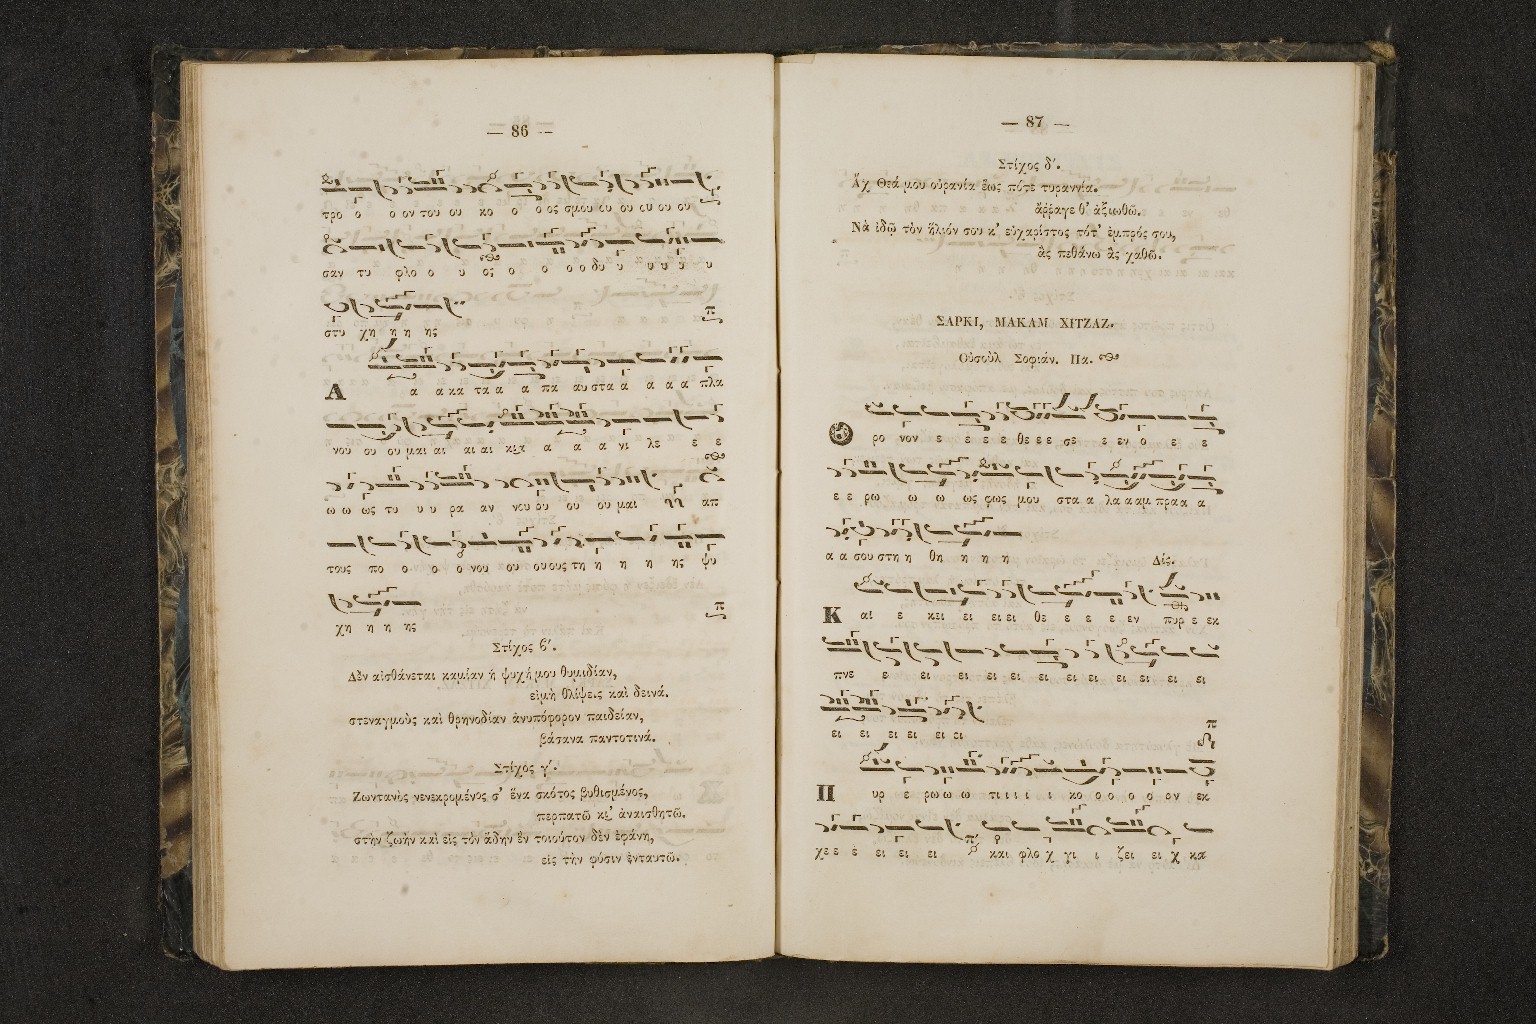 — 86 —
τρο ο ο ον του ου κο ο ο ος σμου ου ου ου ου ου
σαν τυ φλο ο υ ος ο ο ο ο δυ υ υ υ υ υ
στυ χη η η ης
Α α α κα τα α α πα αυ στα α α α α πλα
νου ου ου μαι αι αι αι κι α α α νι λε ε ε
ω ω ως τυ υ υ ρα αν νου ου ου ου μαι απ
τους πο ο ο ο νου ου ου ους τη η η η η ης ψυ
χη η η ης
Στίχος β΄.
Δὲν αἰσθάνεται καμίαν ἡ ψυχή μου θυμιδίαν,
εἰμὴ θλίψεις καὶ δεινά.
στεναγμοὺς καὶ θρηνοδίαν ἀνυπόφορον παιδείαν,
βάσανα παντοτινά.
Στίχος γ΄.
Ζωντανὸς νενεκρομένος σ' ἕνα σκότος βυθισμένος,
περπατῶ κι' ἀναισθητῶ.
στὴν ζωὴν καὶ εἰς τὸν ἅδην ἐν τοιοῦτον δὲν ἐφάνη,
εἰς τὴν φύσιν ἐνταυτῶ.
— 87 —
Στίχος δ΄.
Ἄχ Θεά μου οὐρανία ἕως πότε τυραννία.
ἄῤῥαγε θ' ἀξιωθῶ.
Νὰ ἰδῶ τὸν ἥλιόν σου κ' εὐχαρίστος πότ' ἐμπρός σου,
ἂς πεθάνω ἂς χαθῶ.
ΣΑΡΚΙ, ΜΑΚΑΜ ΧΙΤΖΑΖ.
Οὐσοὺλ Σοφιάν. Πα.
Θ ρο νον ε ε ε ε θε ε ε σε ε εν ο ε ε
ε ε ρω ω ω ως φως μου στα α λα α αμ πρα α α
α α σου στη η θη η η η Δίς.
Κ αι ε κει ει ει ει θε ε ε ε εν πυρ ε εκ
πνε ε ει ει ει ει ει ει ει ει ει ει ει
ει ει ει ει ει ει
Π υρ ε ρω ω ω τι ι ι ι ι κο ο ο ο ο ον εκ
χε ε ε ει ει ει και φλο χ γι ι ζει ει χ κα